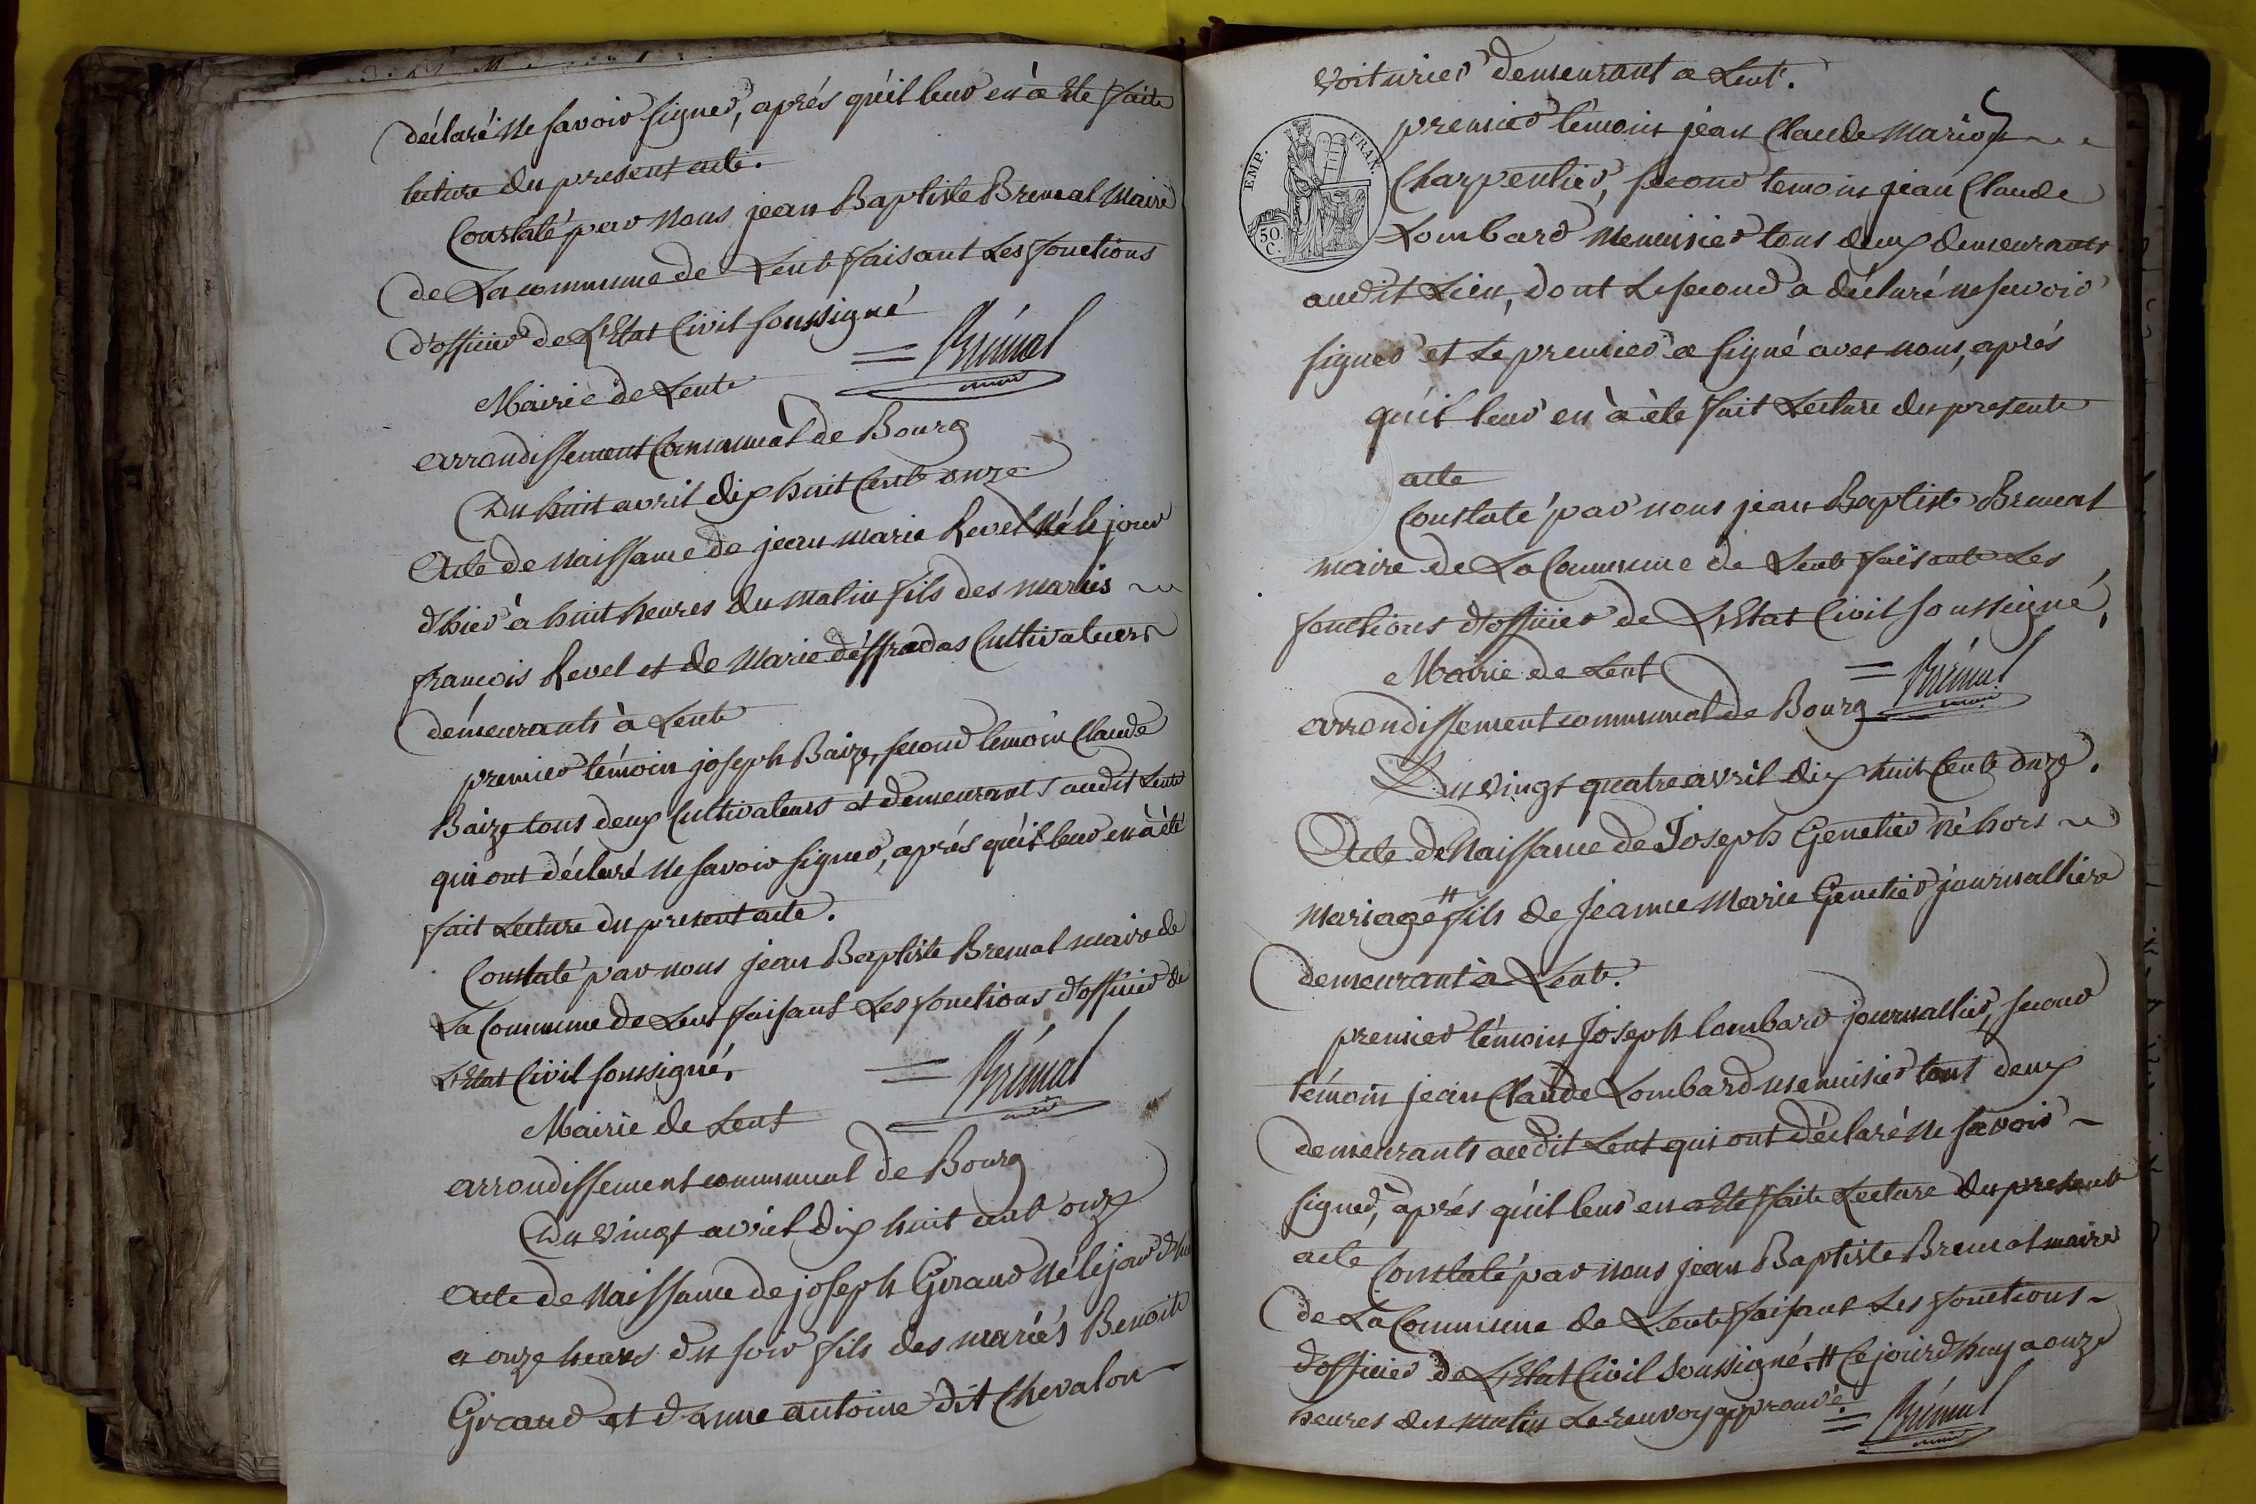 déclaré ne savoir signer, aprés qu'il leur en à Ete faite
lecture du present acte.
Constaté par Nous jean Baptiste Bremal Maire
de La commune de Lent faisant Les fonctions
d'officier de L'Etat Civil soussigné
= Brémal
Mairie de Lent
arrondissement Communal de Bourg
Du huit avril dix huit Cent onze
Acte de Naissance de jean marie Revel Né le jour
d'hier à huit heures du matin fils des mariés
françois Revel et de Marie déffradas Cultivateurs
démeurants à Lent
premier témoin joseph Baize, second temoin Claude
Baize tous deux Cultivateurs et demeurants audit Lent
qui ont déclaré Ne savoir signer, aprés qu'il leur en à été
fait Lecture du present acte.
Constaté par nous jean Baptiste Bremal maire de
La Commune de Lent faisant Les fonctions d'officier de
L'Etat Civil soussigné,
= Brémal
Mairie de Lent
arrondissement communal de Bourg
Du vingt avril dix huit cent onze
acte de Naissance de joseph Giraud Né le jour d'hui
a onze heures du soir fils des mariés Benoit
Giraud et d'anne antoine dit Chevalon
voiturier demeurant a Lent.
EMP. FRAN.
50 C.
premier témoin jean Claude Marion
Charpentier, second temoin jean Claude
Lombard Menuisier tous deux demeurants
audit Lieu, dont Le second a déclaré ne savoir
signer et Le premier a signé avec nous, aprés
qu'il leur en à été fait Lecture du present
acte
Constaté par nous jean Baptiste Bremal
maire de La Commune de Lent faisant Les
fonctions d'officier de L'Etat Civil soussigné,
= Brémal
Mairie de Lent
arrondissement communal de Bourg
Du vingt quatre avril dix huit Cent onze.
Acte de Naissance de Joseph Genetier Né hors
mariage # fils de Jeanne Marie Genetier journalliere
demeurant à Lent.
premier témoin Joseph lombard journallier, second
témoin jean Claude Lombard menuisier tous deux
demeurants audit Lent qui ont déclaré Ne savoir
signer, aprés qu'il leur en a Ete faite Lecture du present
acte
Constaté par nous jean Baptiste Bremal maire
de La Commune de Lent faisant Les fonctions
d'officier de L'Etat Civil soussigné. # Ce jourd'huy a onze
heures du matin Le renvoy approuvé
= Brémal